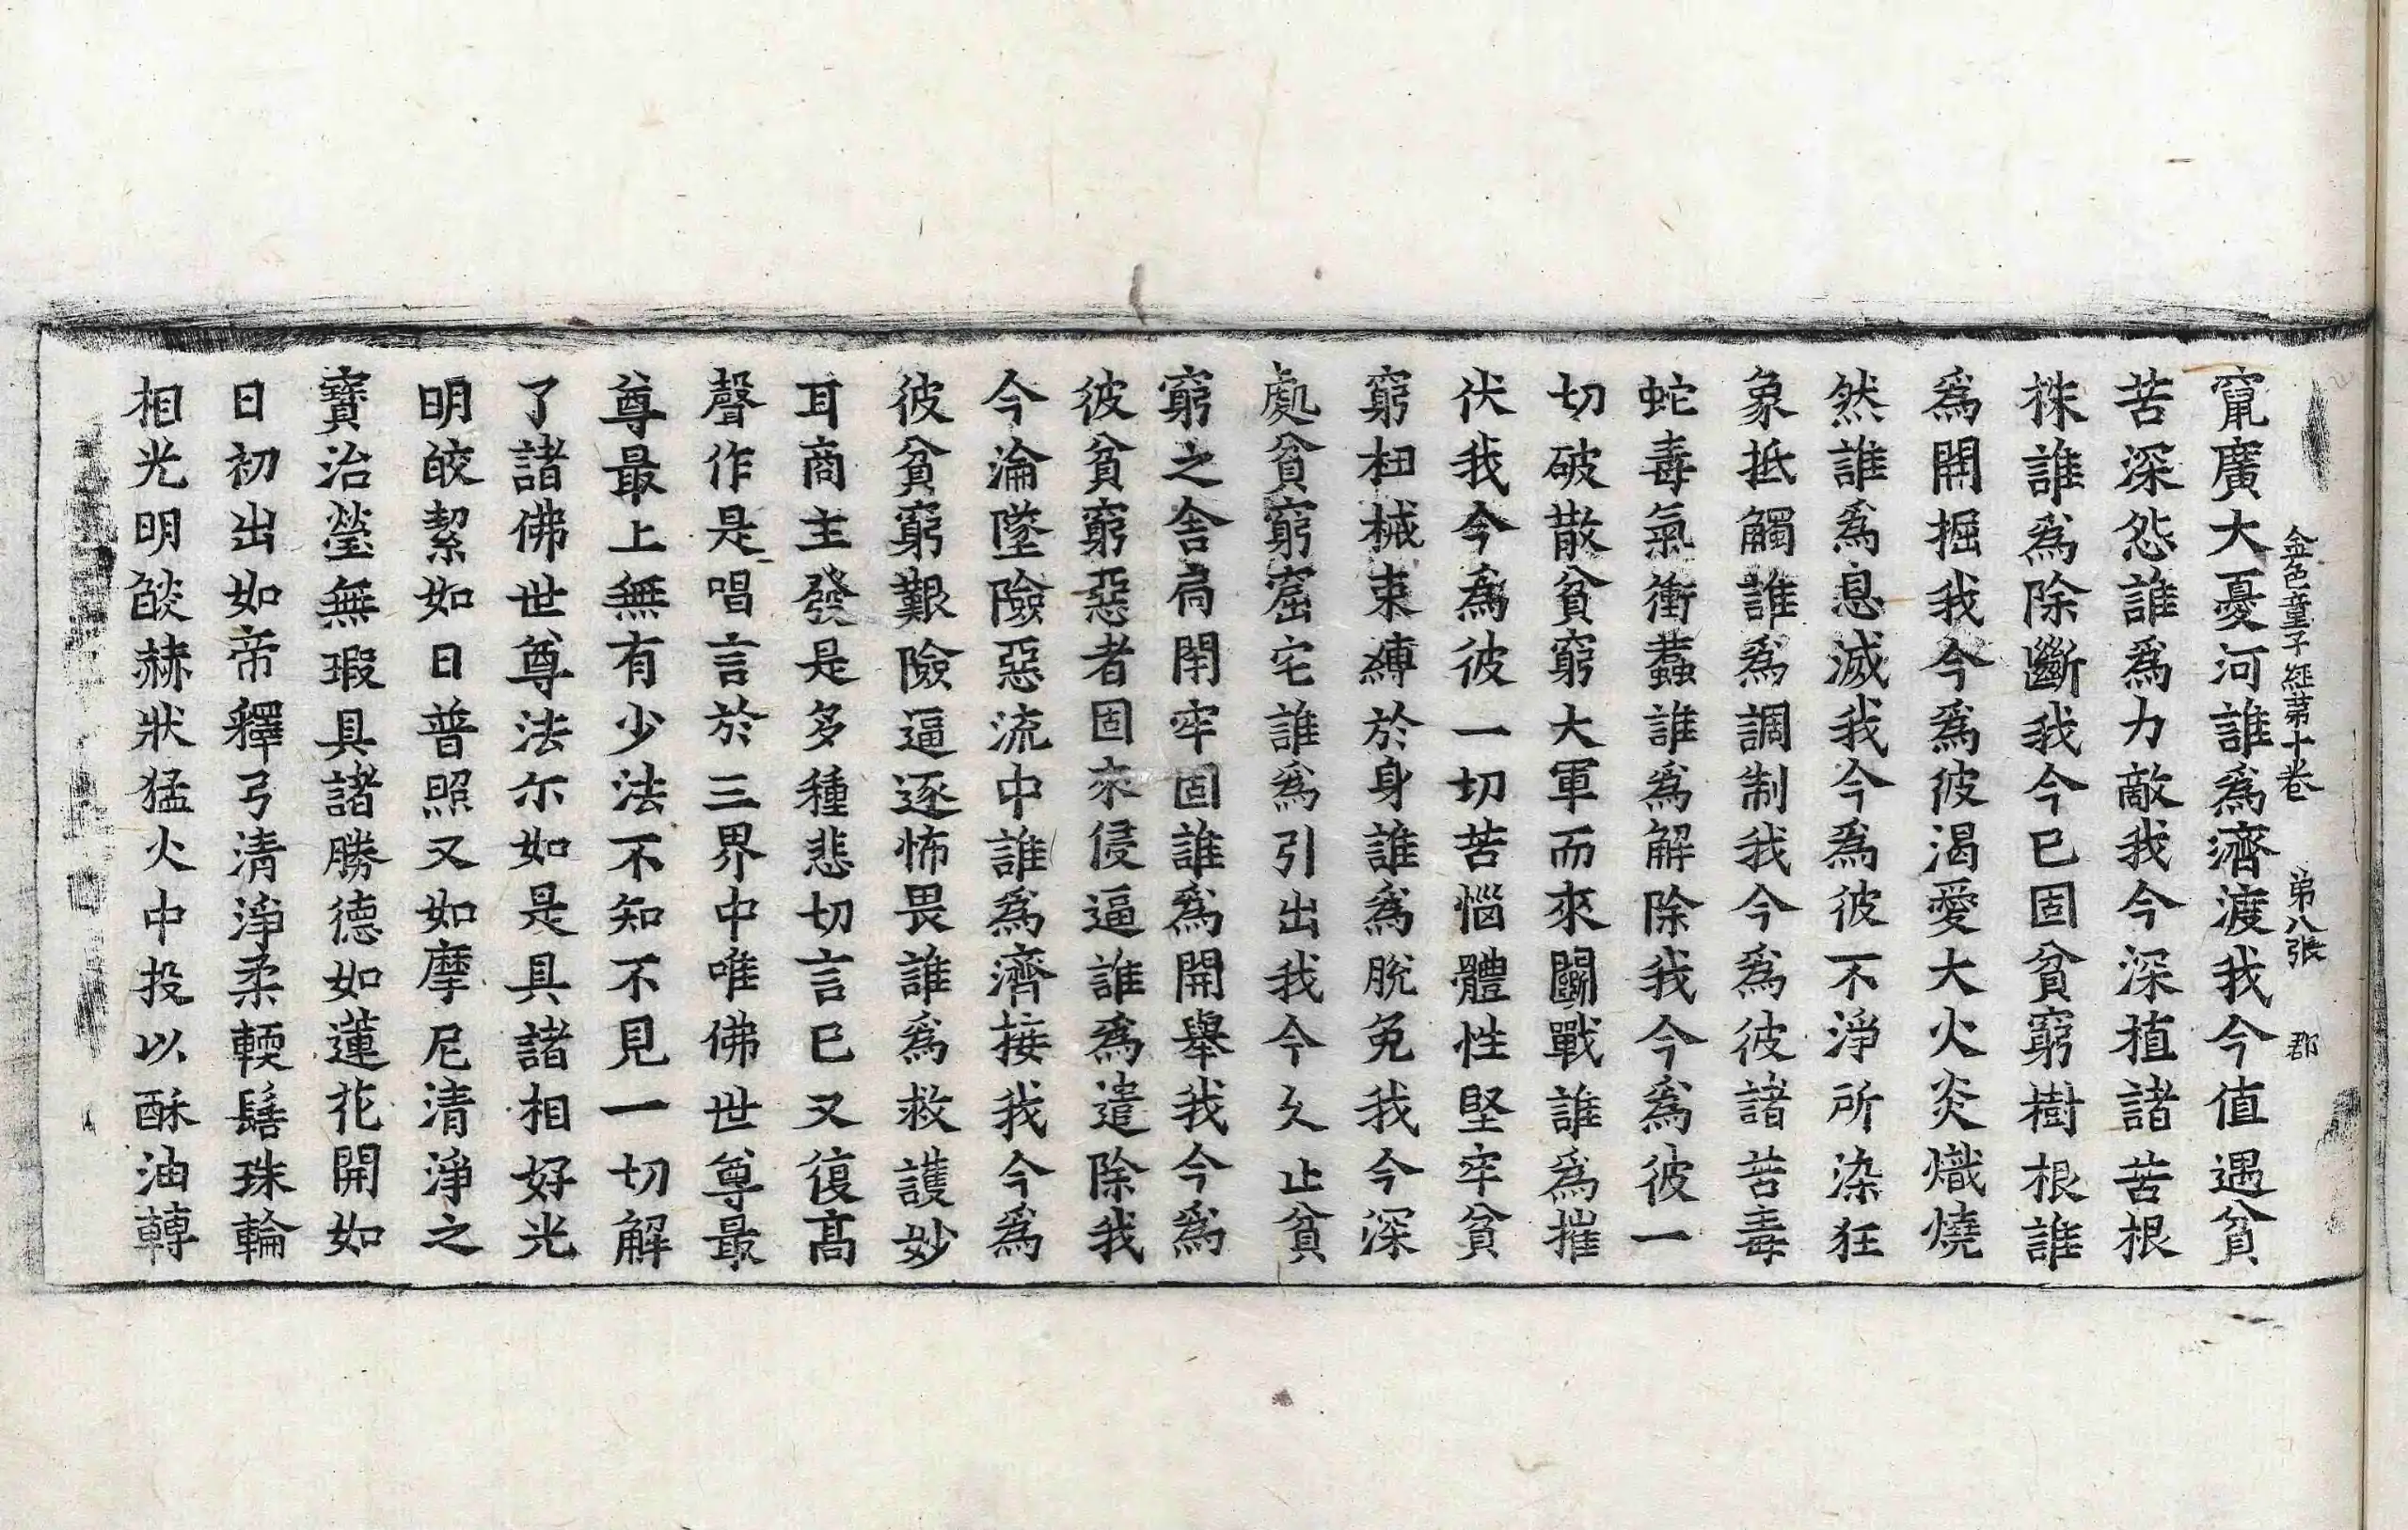 金色童子經第十卷 第八張 郡
竄廣大憂河誰爲濟渡我今值遇貧
苦深怨誰爲力敵我今深植諸苦根
株誰爲除斷我今已固貧窮樹根誰
爲開掘我今爲彼渴愛大火炎熾燒
然誰爲息滅我今爲彼不淨所染狂
象抵觸誰爲調制我今爲彼諸苦毒
蛇毒氣衝蠚誰爲解除我今爲彼一
切破散貧窮大軍而來鬪戰誰爲摧
伏我今爲彼一切苦惱體性堅牢貧
窮杻械束縛於身誰爲脫免我今深
處貧窮窟宅誰爲引出我今久止貧
窮之舍扃閇牢固誰爲開舉我今爲
彼貧窮惡者固來侵逼誰爲遣除我
今淪墜險惡流中誰爲濟接我今爲
彼貧窮艱險逼逐怖畏誰爲救護妙
耳商主發是多種悲切言已又復高
聲作是唱言於三界中唯佛世尊最
尊最上無有少法不知不見一切解
了諸佛世尊法尒如是具諸相好光
明皎絜如日普照又如摩尼清淨之
寶治瑩無瑕具諸勝德如蓮花開如
日初出如帝釋弓清淨柔輭鬘珠輪
相光明燄赫狀猛火中投以酥油轉